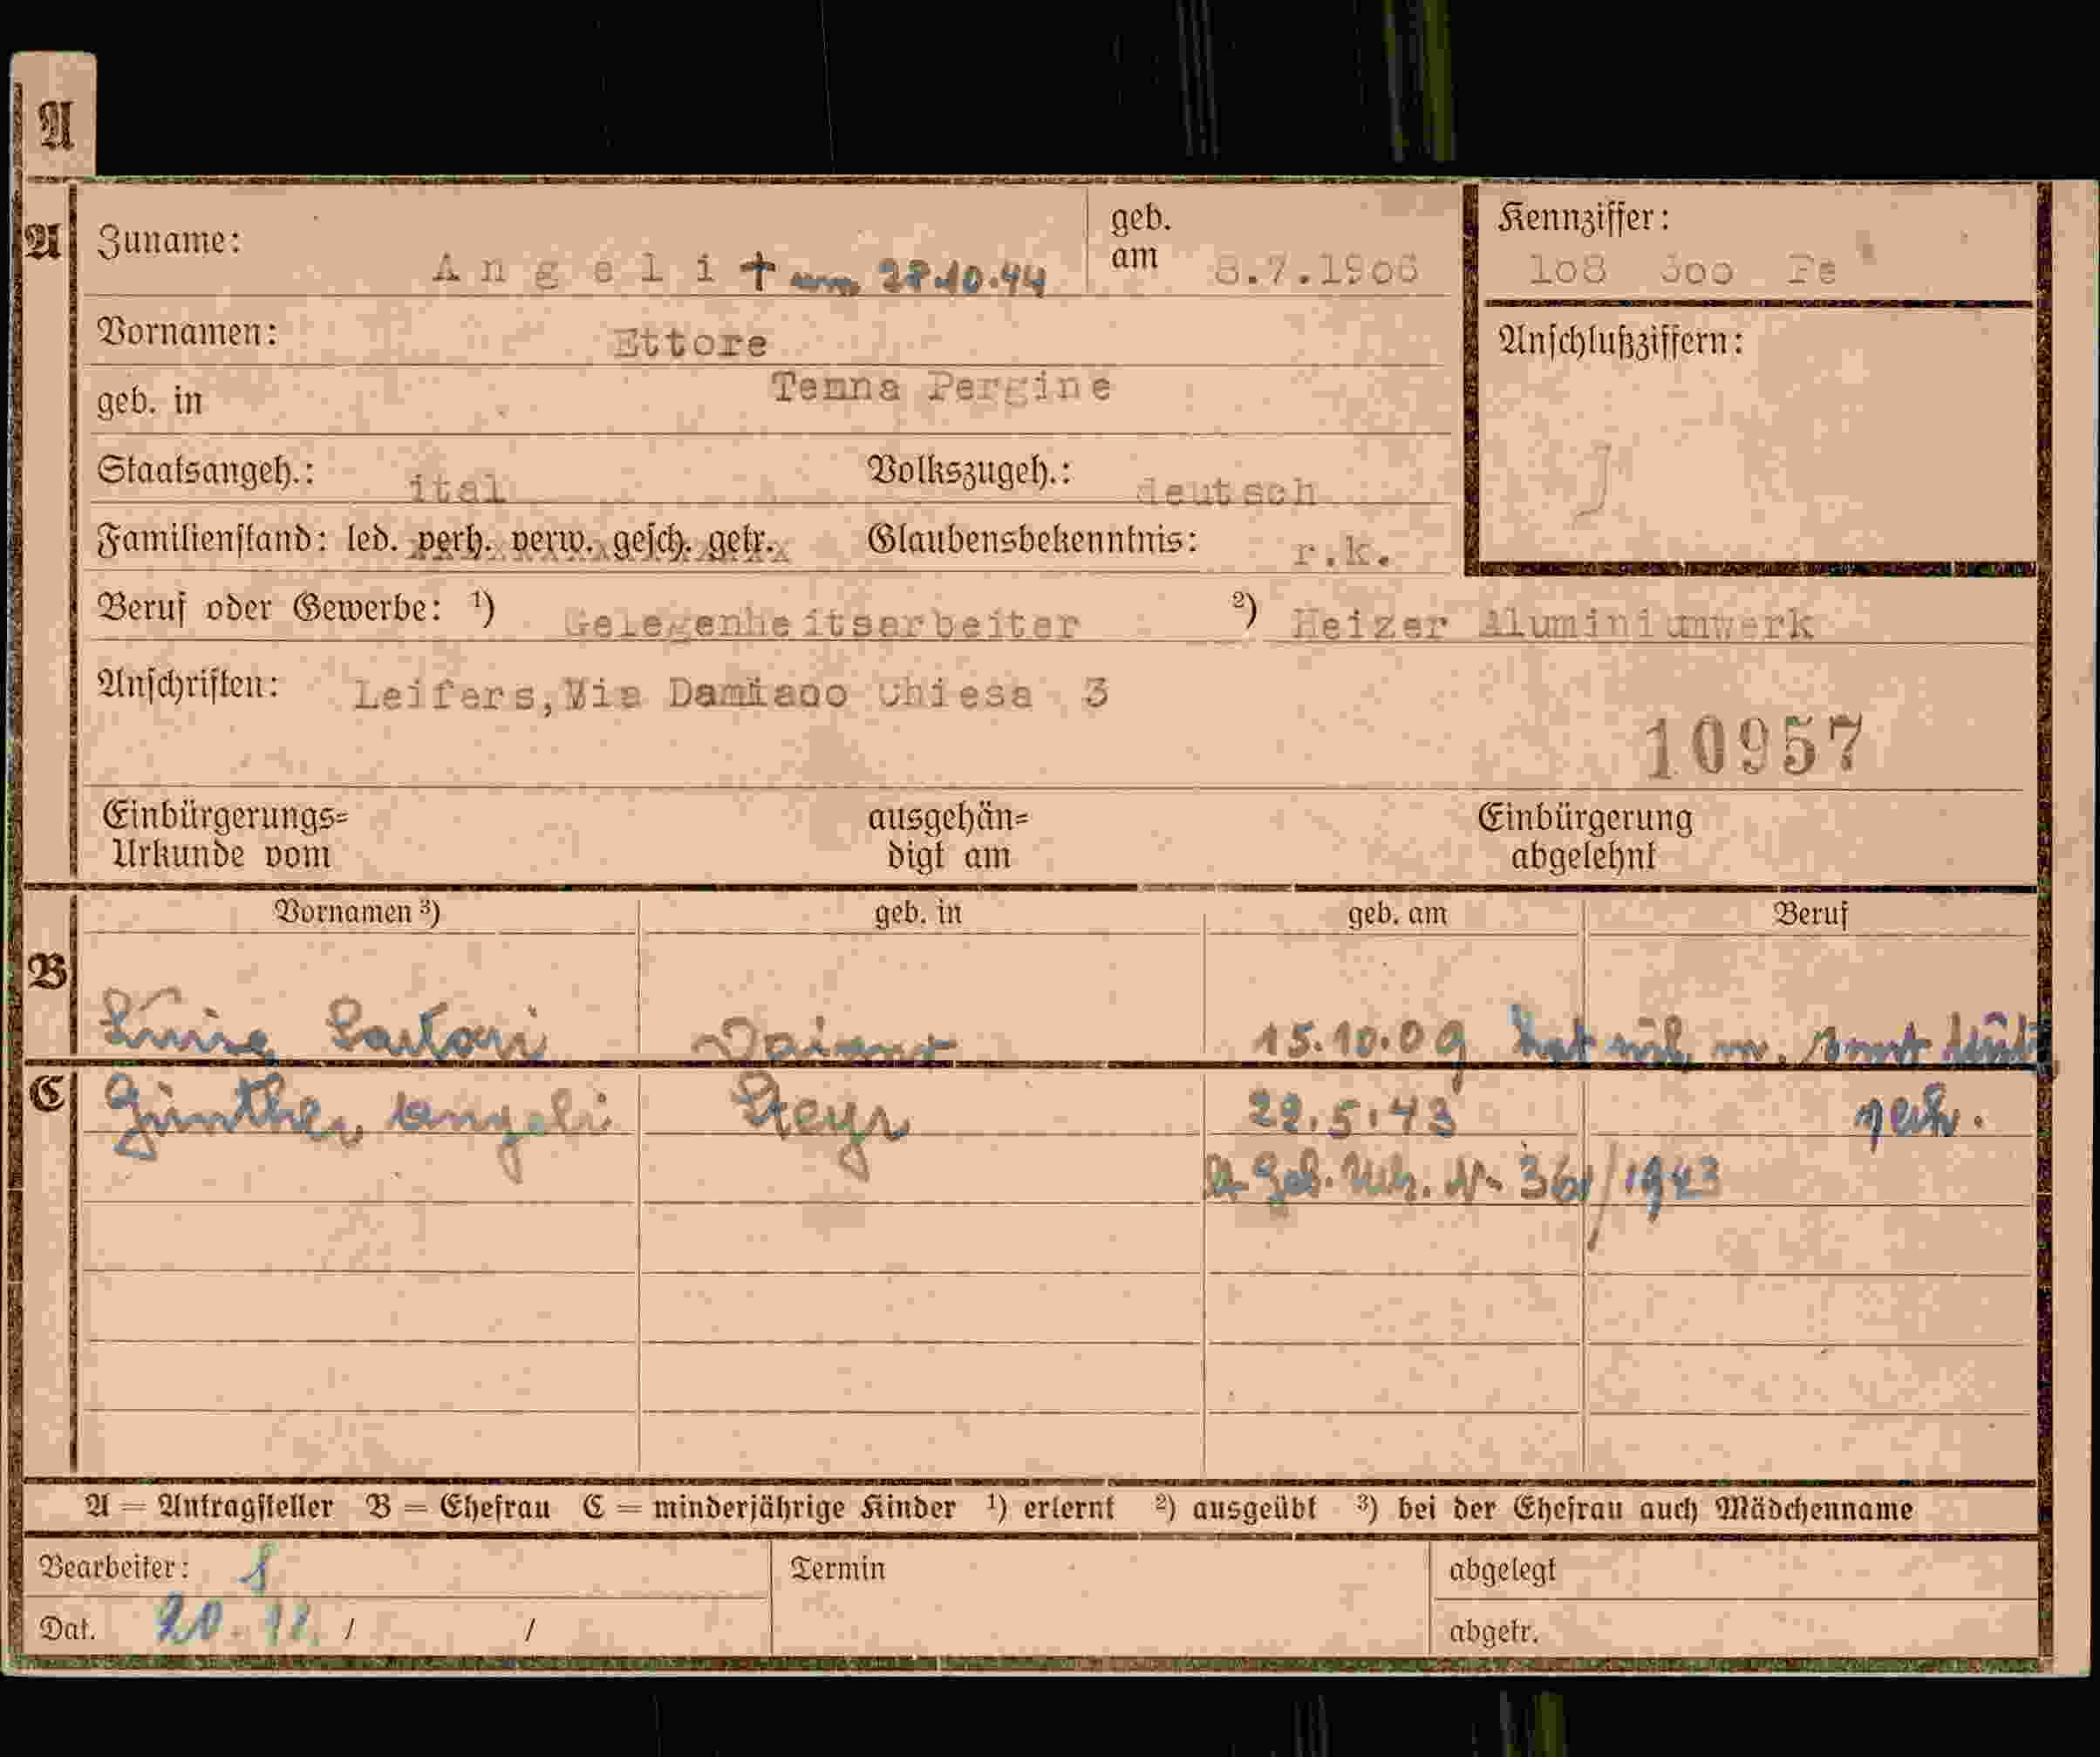 A
A
Zuname: Angeli † am 28.10.44
geb. am 8.7.1906
Kennziffer: 108 300 Fe
Vornamen: Ettore
Anschlußziffern:
geb. in Tenna Pergine
Staatsangeh.: ital Volkszugeh.: deutsch
Familienstand: led. verh. verw. gesch. getr. Glaubensbekenntnis: r.k.
Beruf oder Gewerbe: ¹) Gelegenheitsarbeiter ²) Heizer Aluminiumwerk
Anschriften: Leifers, Via Damiano Chiesa 3
10957
Einbürgerungs= ausgehän= Einbürgerung
Urkunde vom digt am abgelehnt
Vornamen ³) geb. in geb. am Beruf
B
15.10.09 hat
C Günther Angeli Steyr 22.5.43
Geb. Urk. Nr 361/1943
A = Antragsteller B = Ehefrau C = minderjährige Kinder ¹) erlernt ²) ausgeübt ³) bei der Ehefrau auch Mädchenname
Bearbeiter: Termin abgelegt
Dat. 20. / / abgetr.